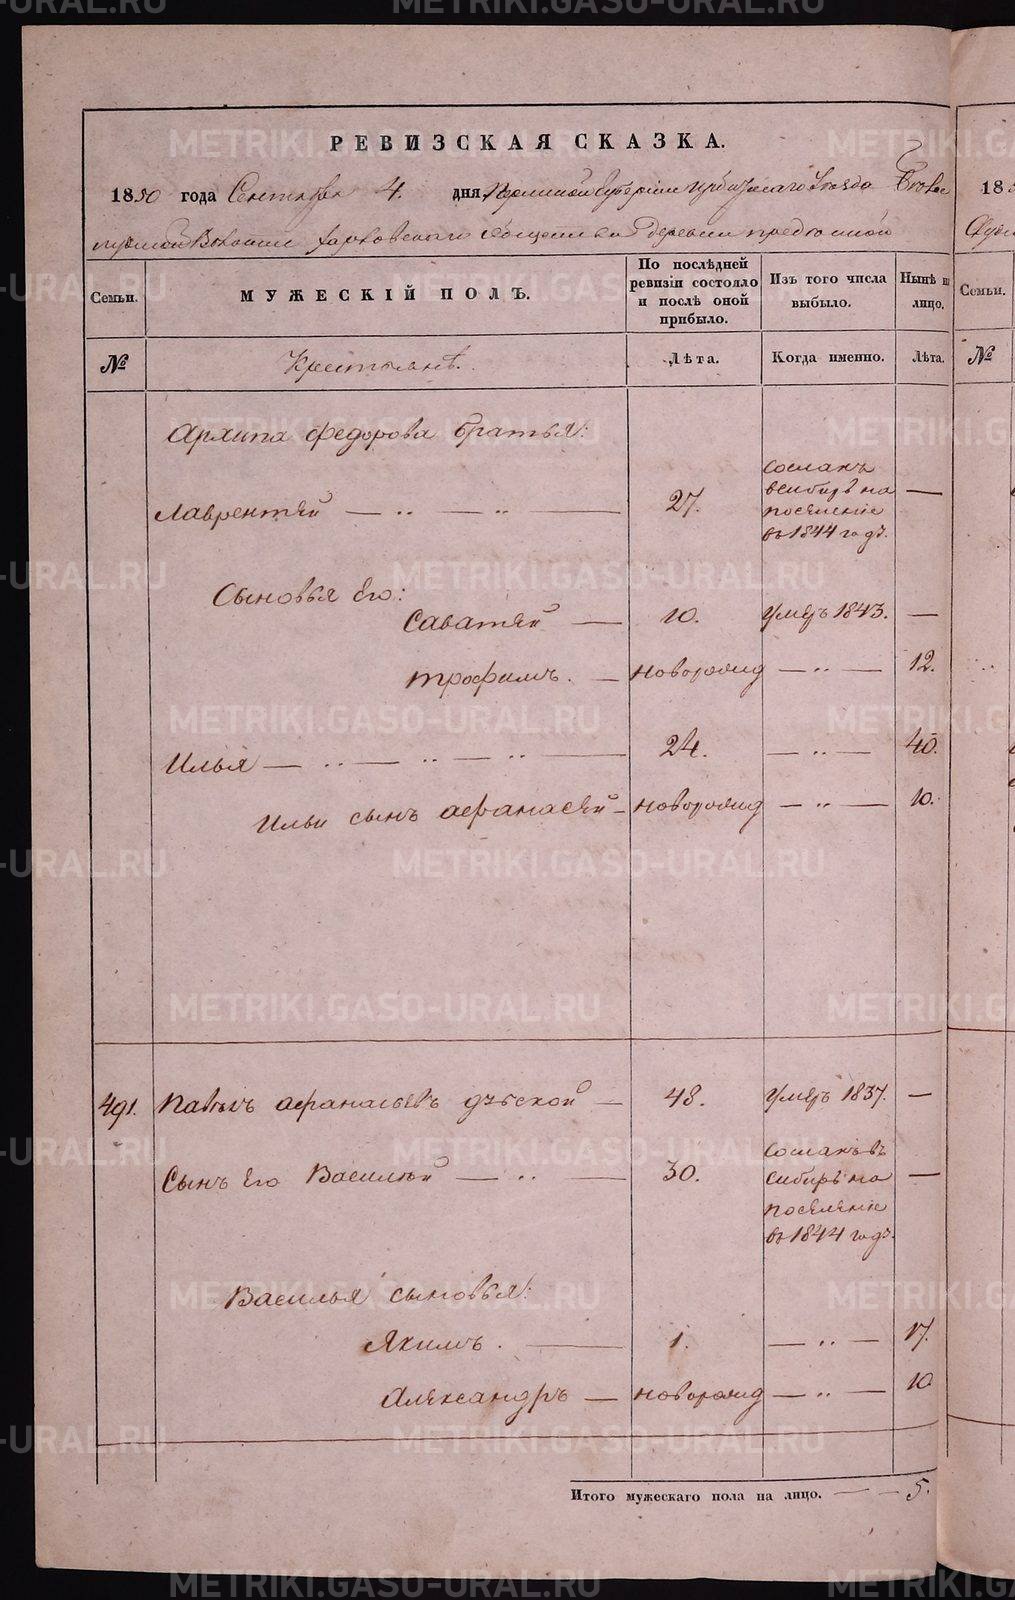 РЕВИЗСКАЯ СКАЗКА.
1850 года Сентября 4. дня Пермской Губерніи Ирбитскаго Уѣзда
Волости Харловскаго общества деревни
Семьи.
МУЖЕСКІЙ ПОЛЪ.
По послѣдней ревизіи состояло и послѣ оной прибыло.
Изъ того числа выбыло.
Нынѣ на лицо.
№
Крестьянѣ.
Лѣта.
Когда именно.
Лѣта.
Архипа Федорова братья:
Лаврентей — 〃 — 〃 — 27. сосланъ всибирь на поселеніе въ 1844 годъ. —
Сыновья Его:
Саватей — 10. Умеръ 1843. —
Трофимъ. — новорожд — 〃 — 12.
Илья — 〃 — 〃 — 〃 — 24. — 〃 — 40.
Ильи сынъ Афанасей — новорожд — 〃 — 10.
491. Павелъ Афанасьевъ — 48. Умеръ 1837. —
Сынъ Его Василей — 〃 — 30. сосланъ въ сибирь на поселеніе въ 1844 годъ. —
Василья сыновья:
Якимъ. — 1. — 〃 — 17.
Александръ — новорожд — 〃 — 10
Итого мужескаго пола на лицо. — — 5.
18
Семьи.
№
METRIKI.GASO-URAL.RU